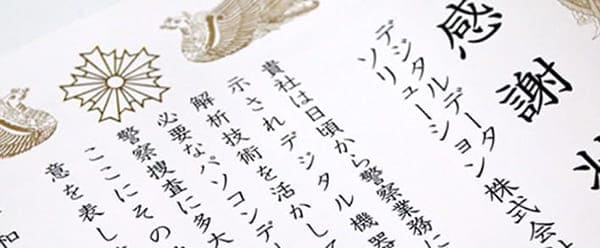 感謝
デジタルデータ
ソリューション株式会
貴社は日頃から警察業務に
示されデジタル機器
解析技術を活かして
必要なパソコンデー
警察捜査に多大
ここにその
意を表し
和